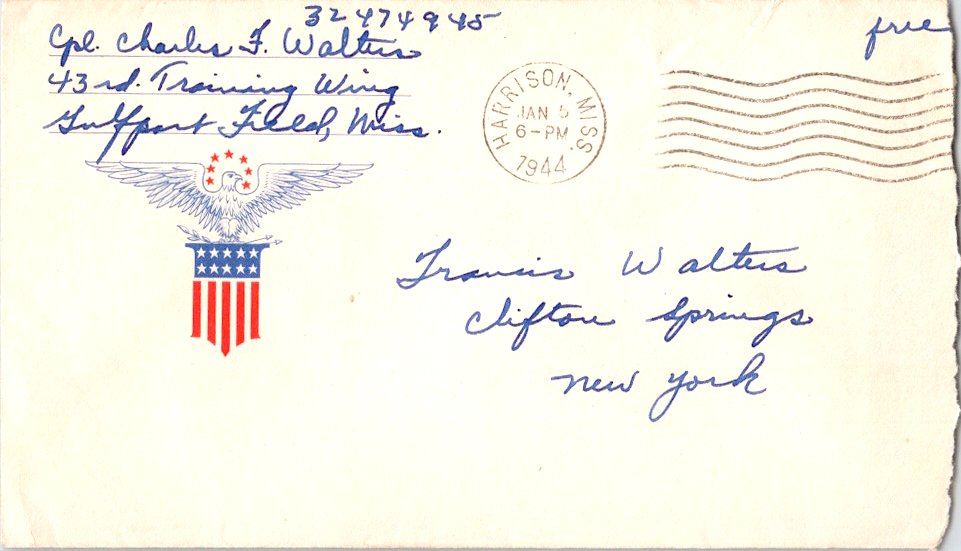 32474945
Cpl. Charles F. Walters
43rd. Training Wing
Gulfport Field, Miss.
free
HARRISON, MISS.
JAN 5
6-PM
1944
Francis Walters
Clifton Springs
New York